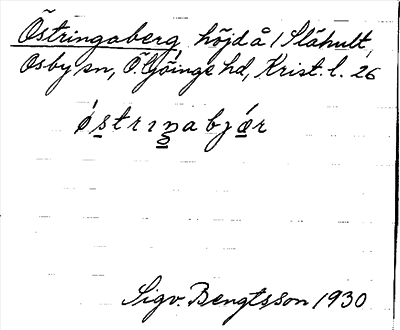 Östringaberg, höjd å / Slähult,
Osby sn, Ö. Göinge hd, Krist. l. 26
ǿstrıŋabjǽr
Sigv. Bengtsson 1930